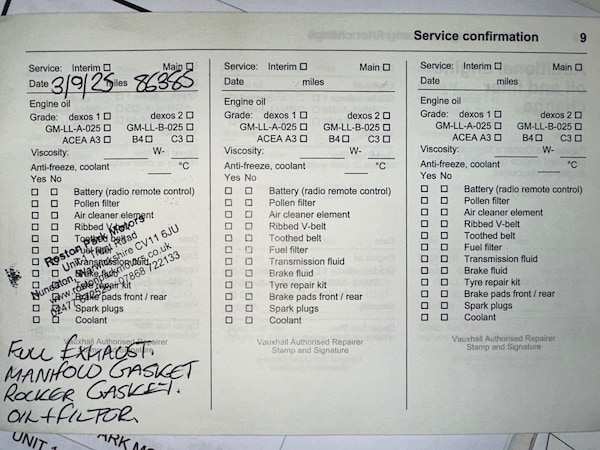 Service confirmation 9
Service: Interim ☐ Main ☐
Date 3/9/25 miles 86385
Engine oil
Grade: dexos 1 ☐ dexos 2 ☐
GM-LL-A-025 ☐ GM-LL-B-025 ☐
ACEA A3 ☐ B4 ☐ C3 ☐
Viscosity: W-
Anti-freeze, coolant °C
Yes No
☐ ☐ Battery (radio remote control)
☐ ☐ Pollen filter
☐ ☐ Air cleaner element
☐ ☐ Ribbed V-belt
☐ ☐ Toothed belt
☐ ☐ Fuel filter
☐ ☐ Transmission fluid
☐ ☐ Brake fluid
☐ ☐ Tyre repair kit
☐ ☐ Brake pads front / rear
☐ ☐ Spark plugs
☐ ☐ Coolant
Roston Park Motors
Unit 1 Road
Nuneaton, Warwickshire CV11 6JU
07868 722133
Vauxhall Authorised Repairer
Stamp and Signature
FULL EXHAUST.
MANIFOLD GASKET
ROCKER GASKET.
OIL + FILTOR
Service: Interim ☐ Main ☐
Date miles
Engine oil
Grade: dexos 1 ☐ dexos 2 ☐
GM-LL-A-025 ☐ GM-LL-B-025 ☐
ACEA A3 ☐ B4 ☐ C3 ☐
Viscosity: W-
Anti-freeze, coolant °C
Yes No
☐ ☐ Battery (radio remote control)
☐ ☐ Pollen filter
☐ ☐ Air cleaner element
☐ ☐ Ribbed V-belt
☐ ☐ Toothed belt
☐ ☐ Fuel filter
☐ ☐ Transmission fluid
☐ ☐ Brake fluid
☐ ☐ Tyre repair kit
☐ ☐ Brake pads front / rear
☐ ☐ Spark plugs
☐ ☐ Coolant
Vauxhall Authorised Repairer
Stamp and Signature
Service: Interim ☐ Main ☐
Date miles
Engine oil
Grade: dexos 1 ☐ dexos 2 ☐
GM-LL-A-025 ☐ GM-LL-B-025 ☐
ACEA A3 ☐ B4 ☐ C3 ☐
Viscosity: W-
Anti-freeze, coolant °C
Yes No
☐ ☐ Battery (radio remote control)
☐ ☐ Pollen filter
☐ ☐ Air cleaner element
☐ ☐ Ribbed V-belt
☐ ☐ Toothed belt
☐ ☐ Fuel filter
☐ ☐ Transmission fluid
☐ ☐ Brake fluid
☐ ☐ Tyre repair kit
☐ ☐ Brake pads front / rear
☐ ☐ Spark plugs
☐ ☐ Coolant
Vauxhall Authorised Repairer
Stamp and Signature
UNIT